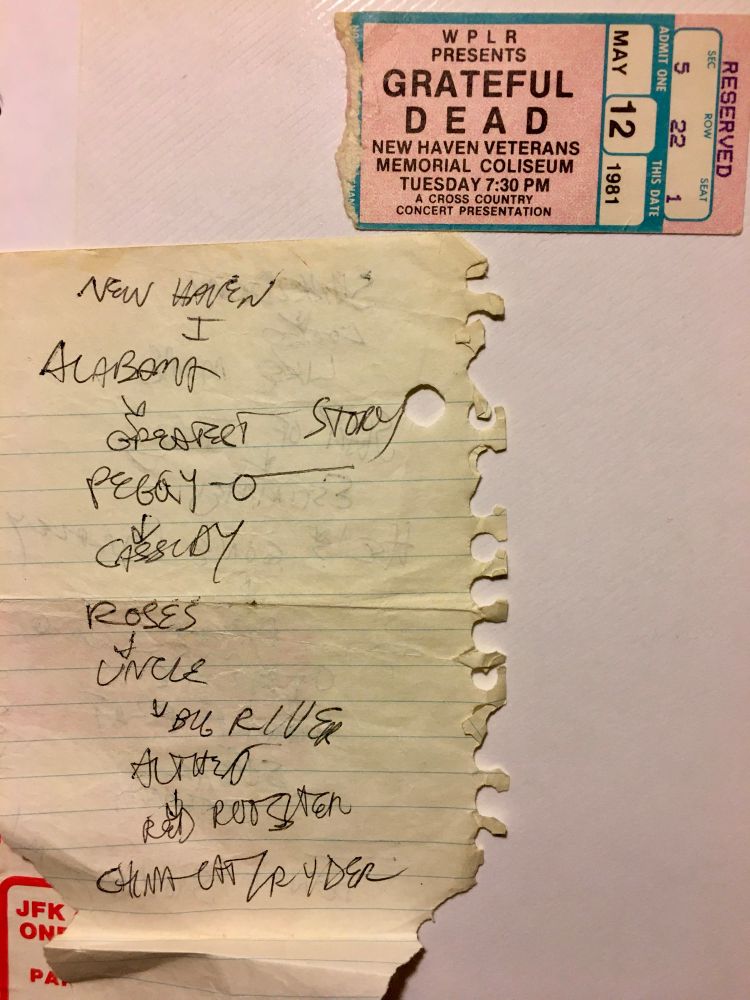 WPLR
PRESENTS
GRATEFUL
DEAD
NEW HAVEN VETERANS
MEMORIAL COLISEUM
TUESDAY 7:30 PM
A CROSS COUNTRY
CONCERT PRESENTATION
MAY 12 1981
ADMIT ONE THIS DATE
SEC ROW SEAT
5 22 1
RESERVED
NEW HAVEN
I
ALABAMA
GREATEST STORY
PEGGY-O
CASSIDY
ROSES
UNCLE
BIG RIVER
ALTHEA
RED ROOSTER
CHINA CAT/RYDER
JFK
ON
PA